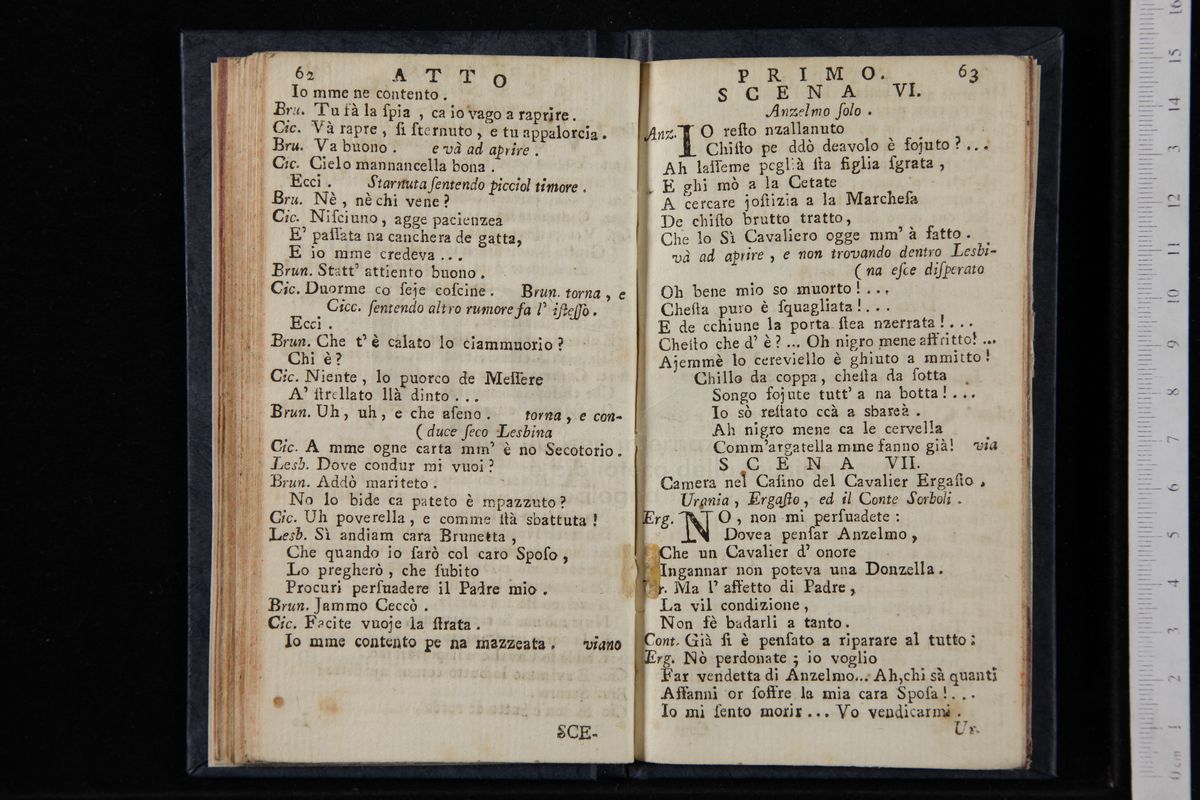 62 ATTO
Io mme ne contento .
Bru. Tu fà la ſpia , ca io vago a raprire.
Cic. Và rapre , ſi ſternuto , e tu appalorcia .
Bru. Va buono . e và ad aprire .
Cic. Cielo mannancella bona .
Ecci . Starnuta ſentendo picciol timore .
Bru. Nè , nè chi vene ?
Cic. Niſciuno , agge pacienzea
E' paſſata na canchera de gatta,
E io mme credeva ...
Brun. Statt' attiento buono .
Cic. Duorme co ſeje coſcine . Brun. torna , e
Cicc. ſentendo altro rumore fa l' iſteſſo .
Ecci .
Brun. Che t' è calato lo ciammuorio ?
Chi è ?
Cic. Niente , lo puorco de Meſſere
A' ſtrellato llà dinto ...
Brun. Uh, uh , e che aſeno . torna , e con-
( duce ſeco Lesbina
Cic. A mme ogne carta mm' è no Secotorio .
Lesb. Dove condur mi vuoi ?
Brun. Addò mariteto .
No lo bide ca pateto è mpazzuto ?
Cic. Uh poverella , e comme ſtà sbattuta !
Lesb. Sì andiam cara Brunetta ,
Che quando io ſarò col caro Spoſo ,
Lo pregherò , che ſubito
Procuri perſuadere il Padre mio .
Brun. Jammo Ceccò .
Cic. Facite vuoje la ſtrata .
Io mme contento pe na mazzeata . viano
SCE-
PRIMO. 63
SCENA VI.
Anzelmo ſolo .
Anz. IO reſto nzallanuto
Chiſto pe ddò deavolo è fojuto ? ...
Ah laſſeme peglià ſta figlia ſgrata ,
E ghi mò a la Cetate
A cercare joſtizia a la Marcheſa
De chiſto brutto tratto ,
Che lo Sì Cavaliero ogge mm' à fatto .
và ad aprire , e non trovando dentro Lesbi-
( na eſce diſperato
Oh bene mio so muorto ! ...
Cheſta puro è ſquagliata ! ...
E de cchiune la porta ſtea nzerrata ! ...
Cheſto che d' è ? ... Oh nigro mene affritto! ...
Ajemmè lo cereviello è ghiuto a mmitto !
Chillo da coppa , cheſta da ſotta
Songo fojute tutt' a na botta ! ...
Io sò reſtato ccà a sbareà .
Ah nigro mene ca le cervella
Comm'argatella mme fanno già! via
SCENA VII.
Camera nel Caſino del Cavalier Ergaſto .
Urania , Ergaſto , ed il Conte Sorboli .
Erg. NO , non mi perſuadete :
Dovea penſar Anzelmo ,
Che un Cavalier d' onore
Ingannar non poteva una Donzella .
Ur. Ma l' affetto di Padre ,
La vil condizione ,
Non fè badarli a tanto .
Cont. Già ſi è penſato a riparare al tutto :
Erg. Nò perdonate ; io voglio
Far vendetta di Anzelmo... Ah,chi sà quanti
Affanni or ſoffre la mia cara Spoſa ! ...
Io mi ſento morir ... Vo vendicarmi .
Ur.